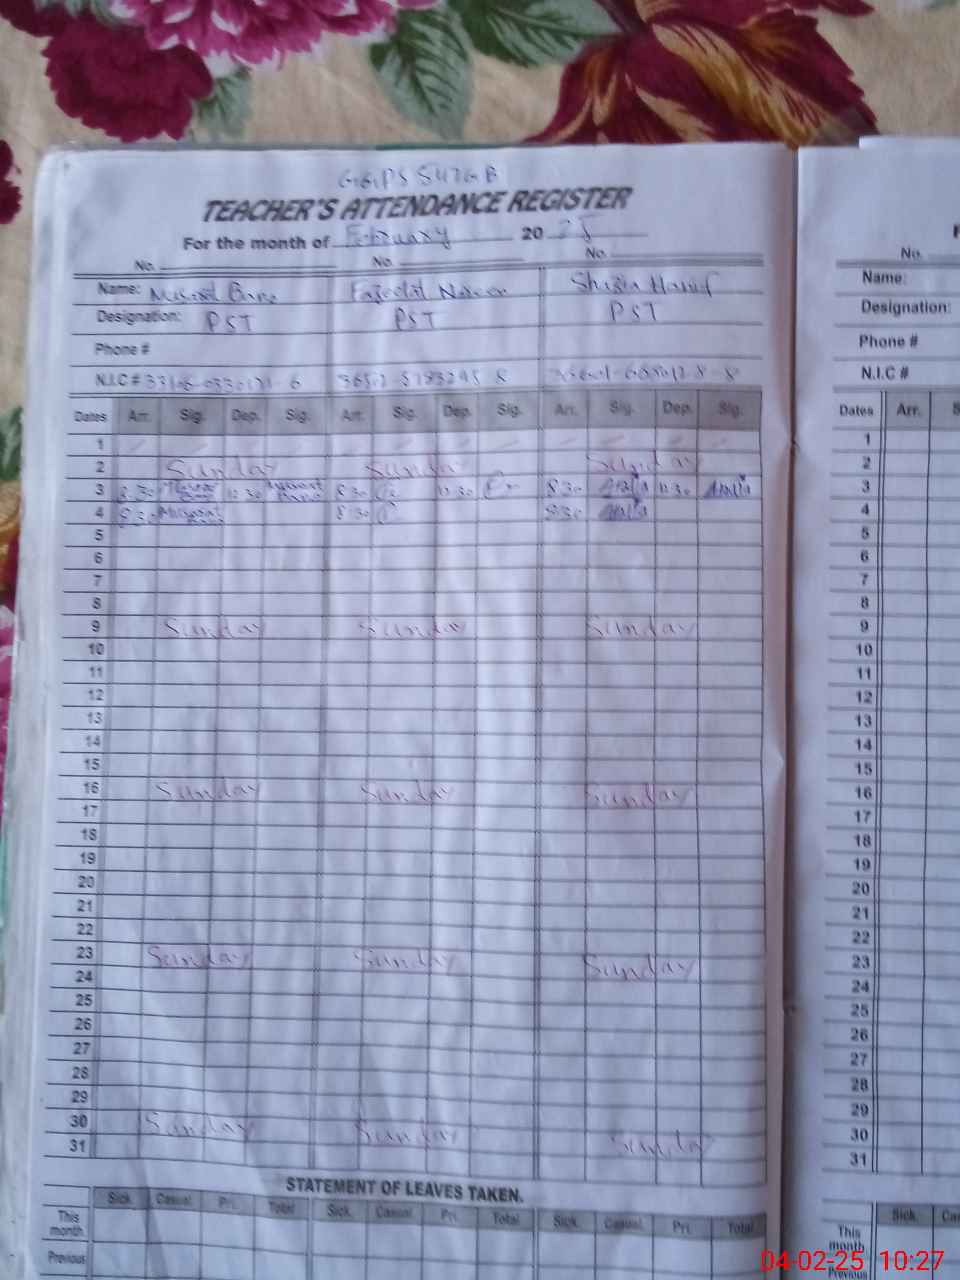 TEACHER'S ATTENDANCE REGISTER
For the month of February 20 25
No. No. No.
Name: Bano Shazia Hanif
Designation: PST PST PST
Phone #
N.I.C #
Dates Arr. Sig. Dep. Sig. Arr. Sig. Dep. Sig. Arr. Sig. Dep. Sig.
1
2 Sunday Sunday Sunday
3 8:30 Musarat Bano 12:30 Musarat Bano 8:30 12:30 8:30 12:30
4 8:30 Musarat Bano 8:30 8:30
5
6
7
8
9 Sunday Sunday Sunday
10
11
12
13
14
15
16 Sunday Sunday Sunday
17
18
19
20
21
22
23 Sunday Sunday Sunday
24
25
26
27
28
29
30 Sunday Sunday
31 Sunday
STATEMENT OF LEAVES TAKEN.
Sick. Casual. Pri. Total Sick. Casual. Pri. Total Sick. Casual. Pri. Total
This month
Previous
No.
Name:
Designation:
Phone #
N.I.C #
Dates Arr.
1
2
3
4
5
6
7
8
9
10
11
12
13
14
15
16
17
18
19
20
21
22
23
24
25
26
27
28
29
30
31
Sick.
This month
Previous
04-02-25 10:27